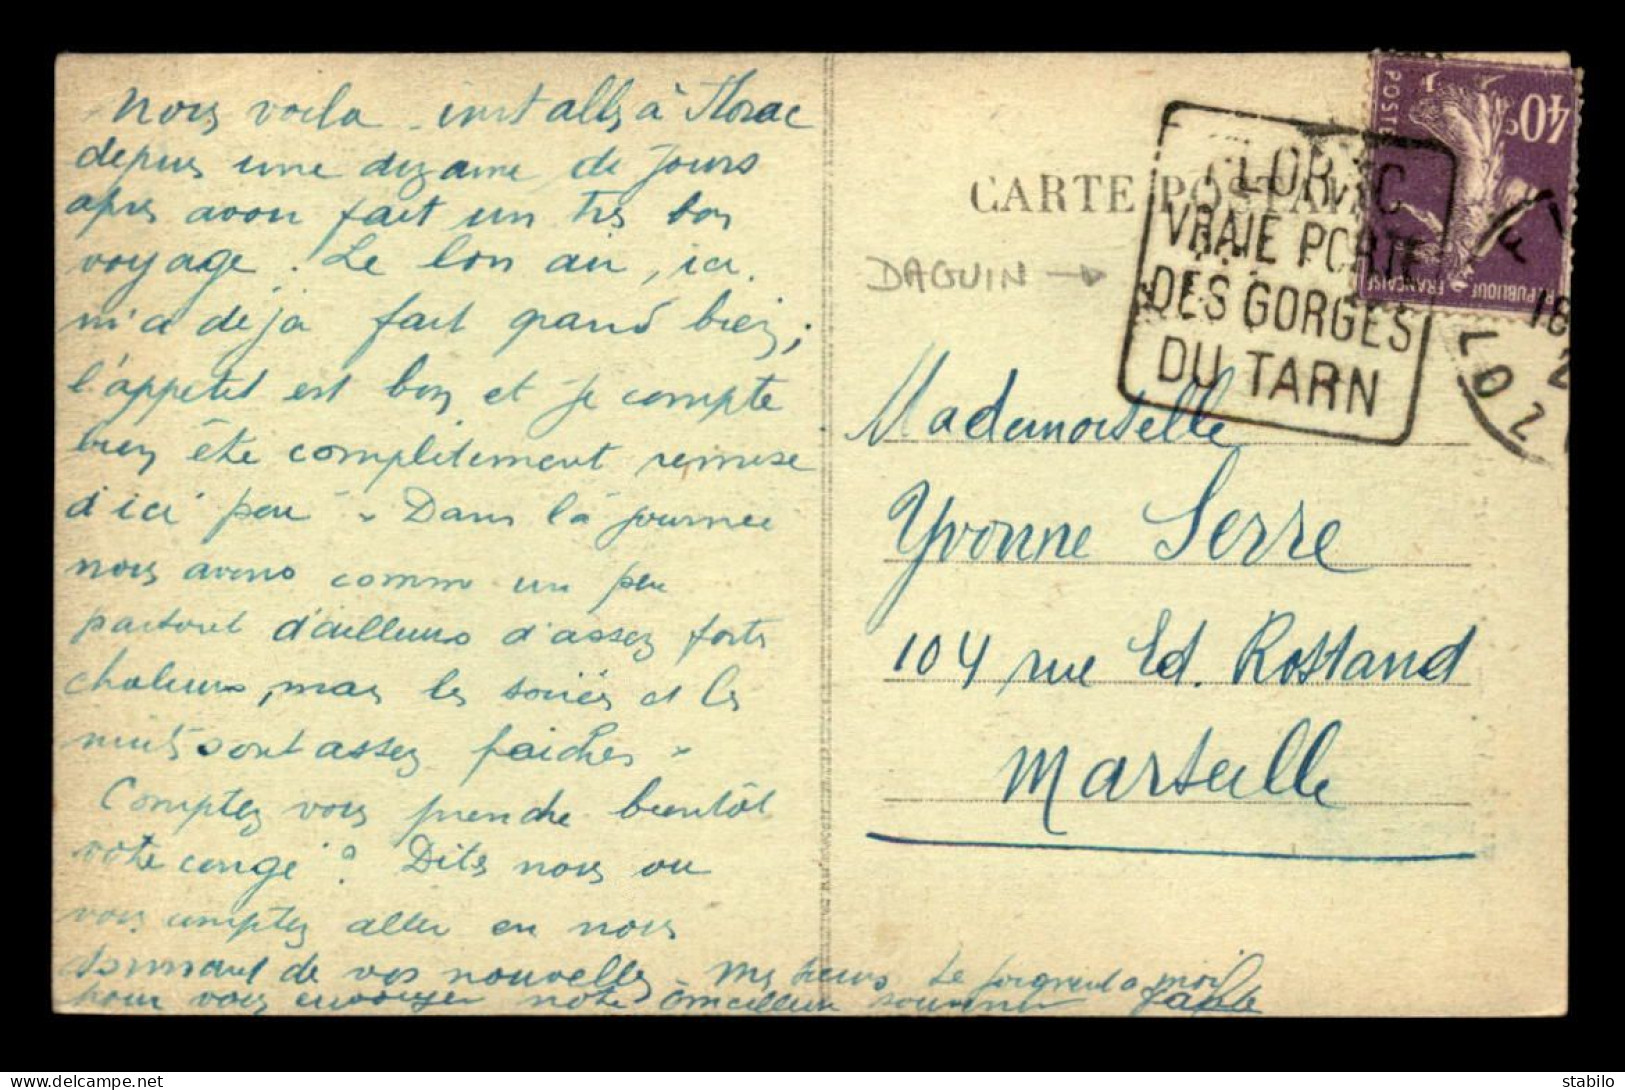 Nous voila installés à Florac
depuis une dizaine de jours
après avoir fait un très bon
voyage. Le bon air, ici
m'a déjà fait grand bien;
l'appetit est bon et je compte
bien être complètement remise
d'ici peu. Dans la journée
nous avons comme un peu
partout d'ailleurs d'assez fortes
chaleurs, mais les soirées et les
nuits sont assez fraiches.
Comptez vous prendre bientôt
votre congé? Dites nous ou
vous comptez aller en nous
donnant de vos nouvelles. Mes se joignent a moi
pour vous envoyer notre meilleur souvenir
CARTE POSTALE
DAGUIN →
FLORAC
VRAIE PORTE
DES GORGES
DU TARN
40c
POSTES
REPUBLIQUE FRANÇAISE
18
LOZ
Mademoiselle
Yvonne Serre
104 rue Ed. Rostand
Marseille
stabilo